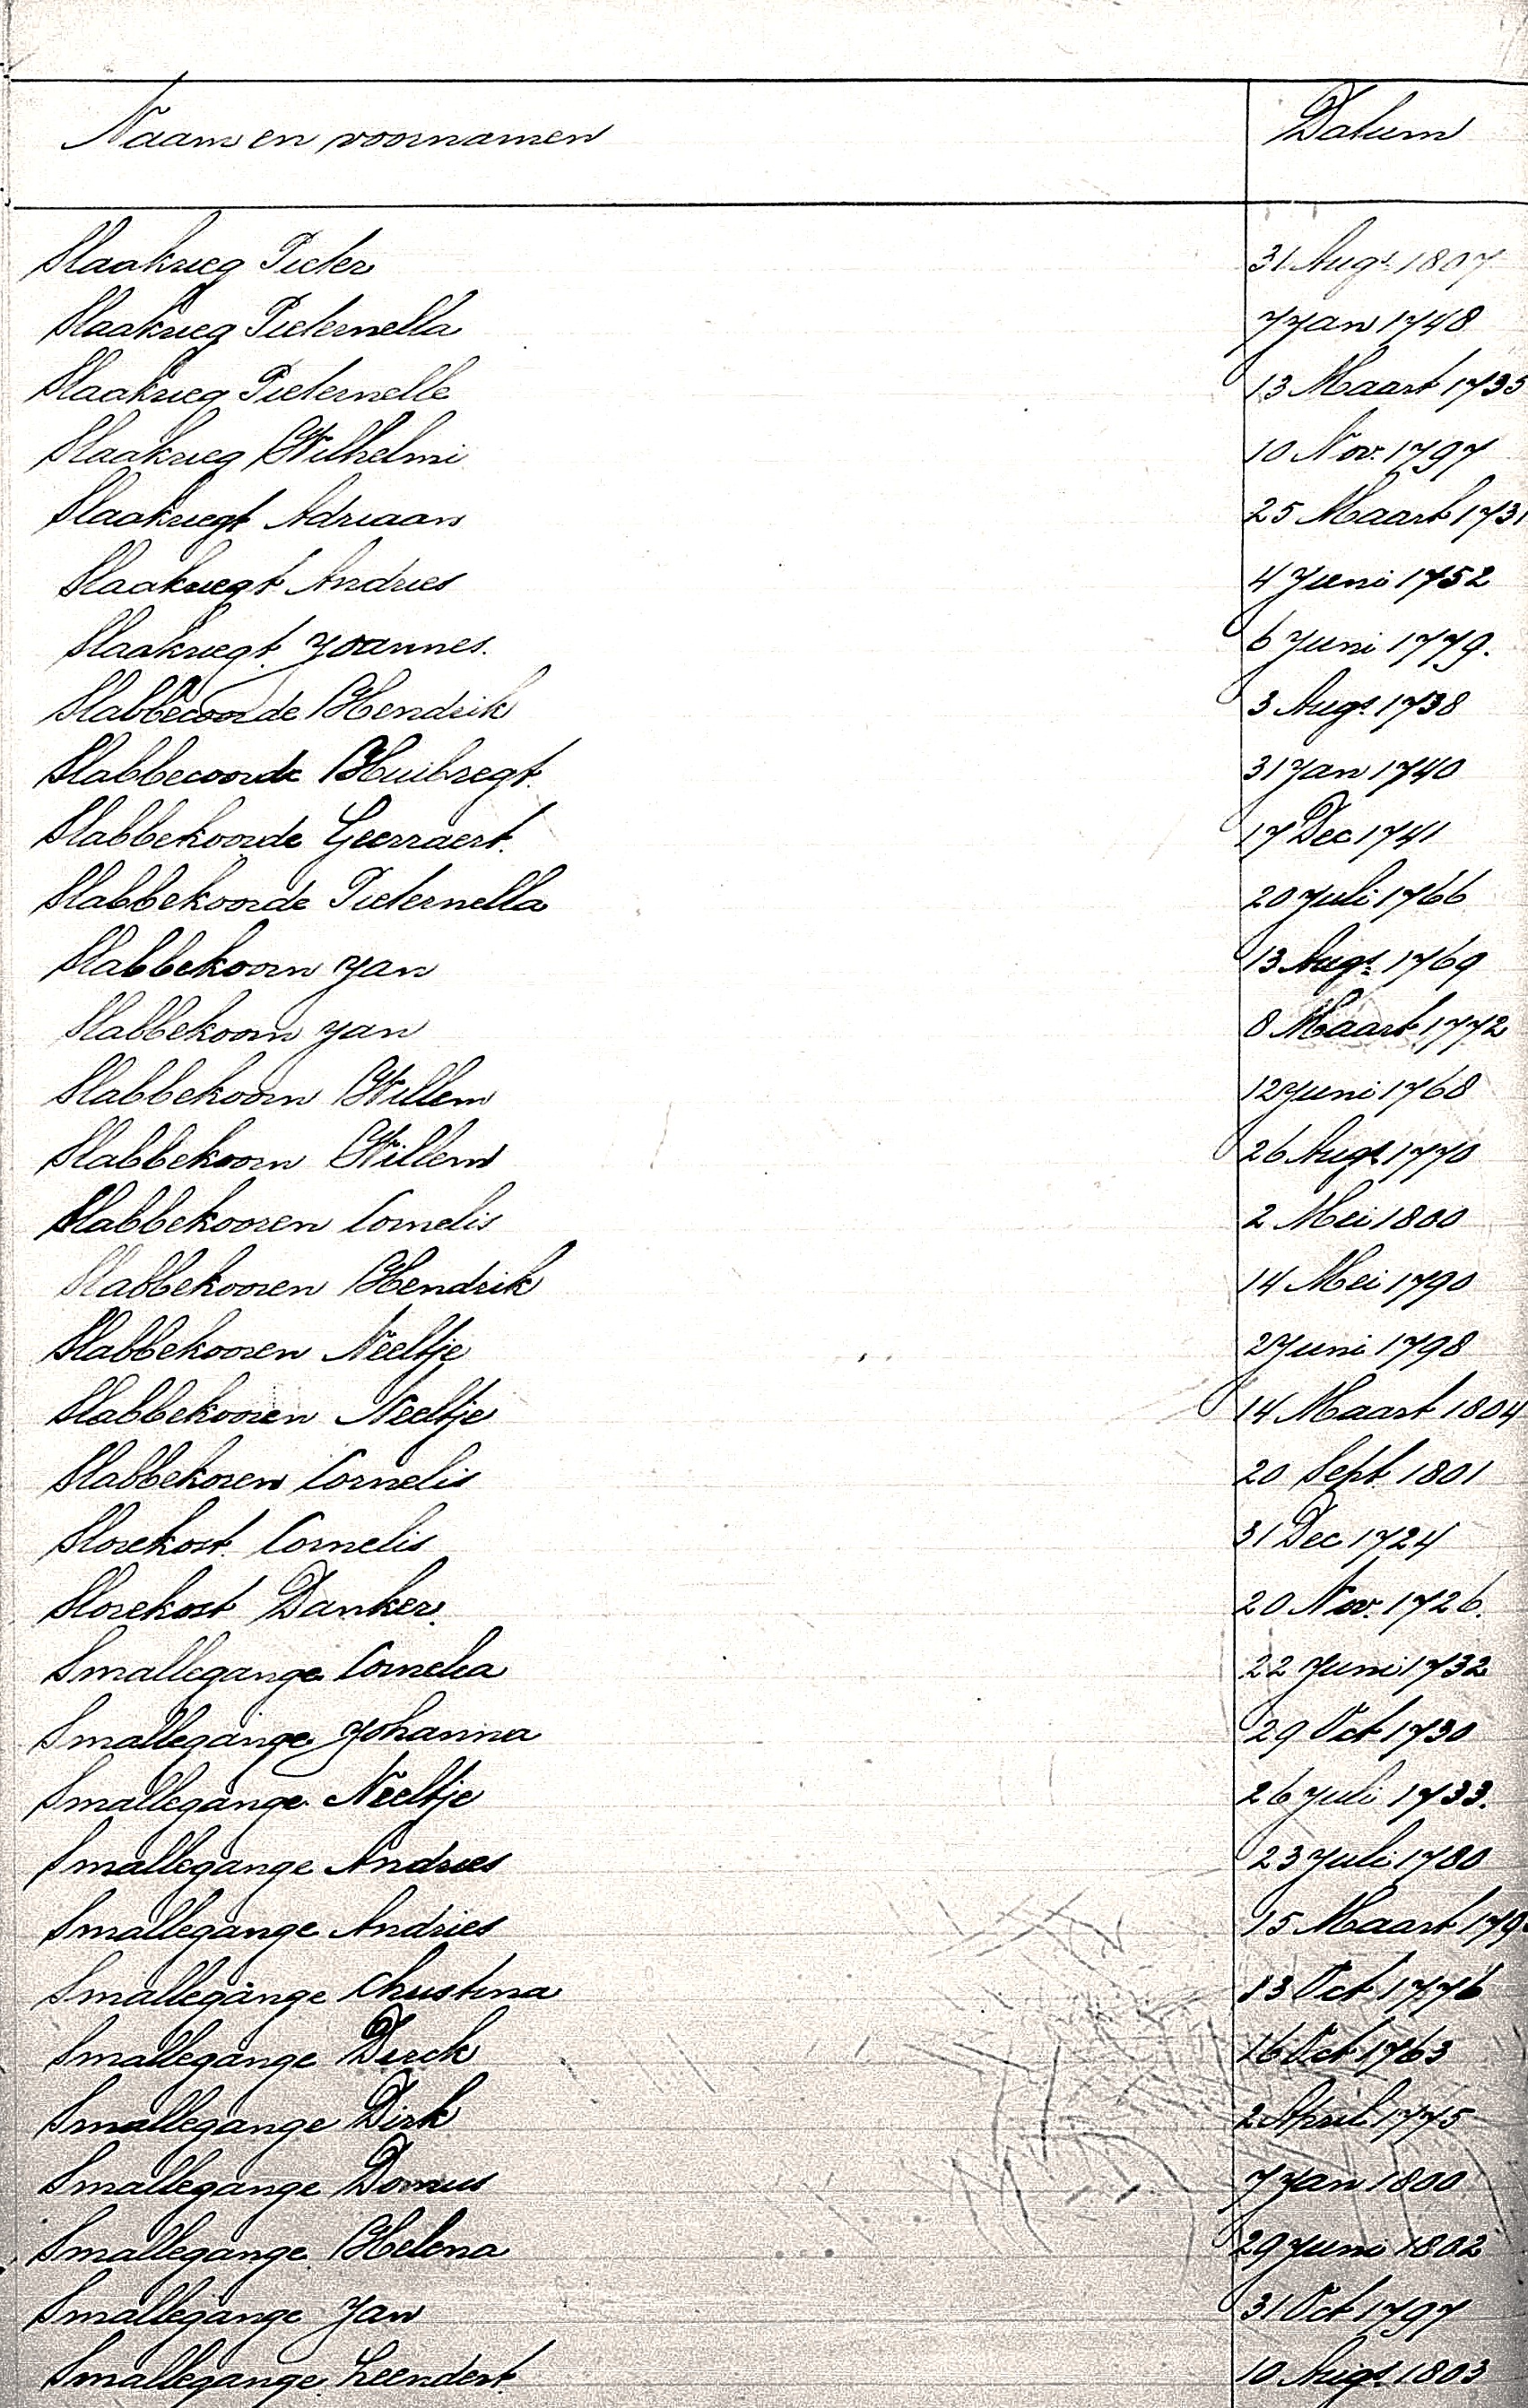 Naam en voornamen Datum
Slaakrieg Pieter 31 Augs. 1807
Slaakrieg Pieternella 7 Jan 1748
Slaakrieg Pieternelle 13 Maart 1735
Slaakrieg Wilhelmi 10 Nov. 1797
Slaakriegt Adriaan 25 Maart 1731
Slaakriegt Andries 4 Juni 1752
Slaakriegt Joannes. 6 Juni 1779.
Slabbecoorde Hendrik 3 Augs. 1738
Slabbecoorde Huibregt. 31 Jan 1740
Slabbekoorde Geerraert. 17 Dec 1741
Slabbekoorde Pieternella 20 Juli 1766
Slabbekoorn Jan 13 Augs. 1769
Slabbekoorn Jan 8 Maart 1772
Slabbekoorn Willem 12 Juni 1768
Slabbekoorn Willem 26 Augs 1770
Slabbekooren Cornelis 2 Mei 1800
Slabbekooren Hendrik 14 Mei 1790
Slabbekooren Neeltje 2 Juni 1798
Slabbekooren Neeltje 14 Maart 1804
Slabbekoren Cornelis 20 Sept. 1801
Slorekost. Cornelis 31 Dec 1724
Slorekost Danker. 20 Nov. 1726.
Smallegange Cornelia 22 Juni 1732
Smallegange Johanna 29 Oct 1730
Smallegange Neeltje 26 Juli 1733.
Smallegange Andries 23 Juli 1780
Smallegange Andries 15 Maart
Smallegange Christina 13 Oct 1776
Smallegange Dirck 16 Oct 1763
Smallegange Dirk 2 April 1775
Smallegange Domus 7 Jan 1800
Smallegange Helena 29 Juni 1802
Smallegange Jan 31 Oct 1797
Smallegange Leendert. 10 Augs. 1803